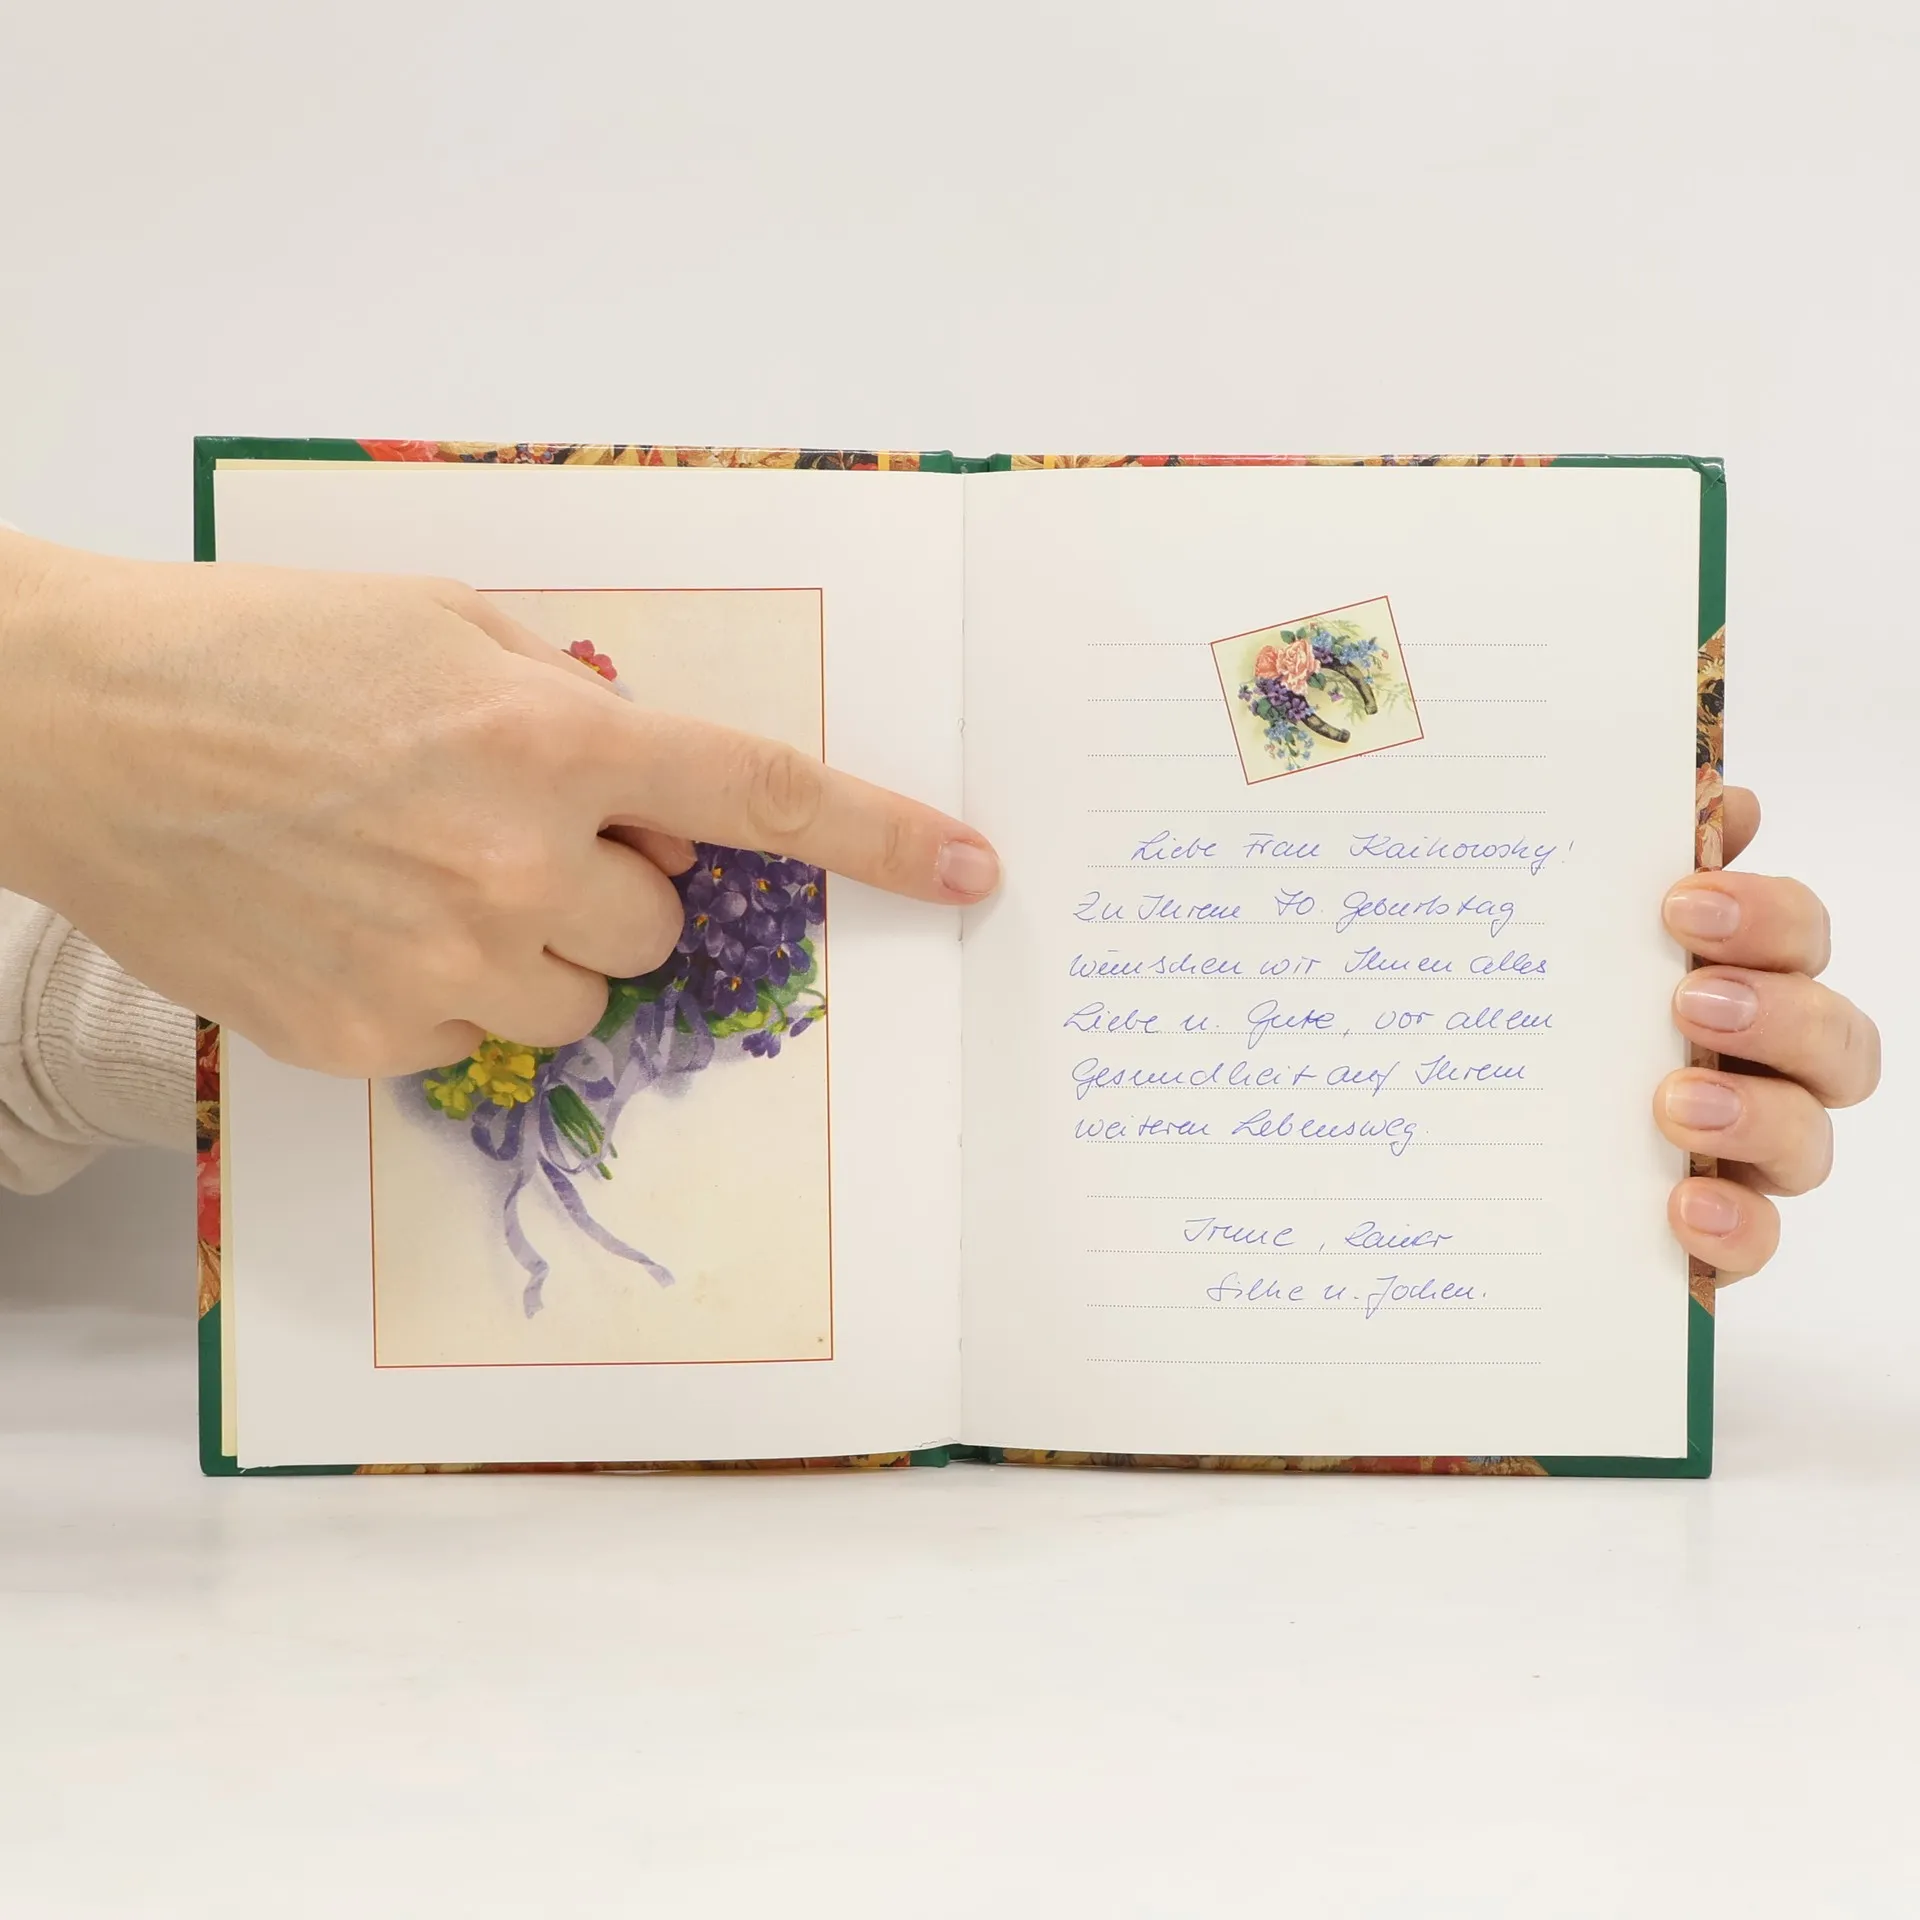 Liebe Frau Kaikowsky!
Zu Ihrem 70. Geburtstag
wünschen wir Ihnen alles
Liebe u. Gute, vor allem
Gesundheit auf Ihrem
weiteren Lebensweg.
Irene, Rainer
Silke u. Jochen.